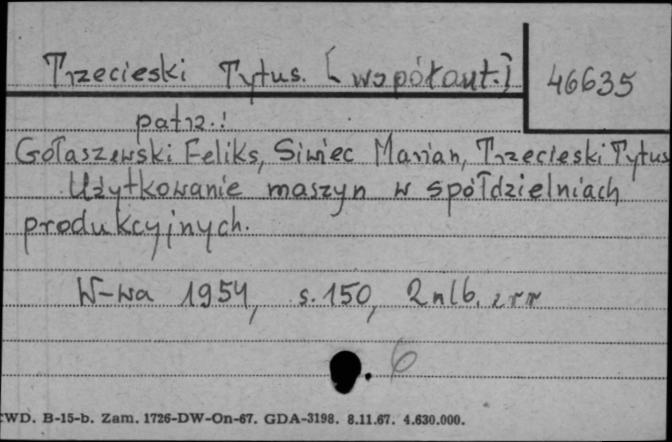 Trzecieski Tytus. [współaut.] 46635
patrz.:
Gołaszewski Feliks, Siwiec Marian, Trzecieski Tytus
Użytkowanie maszyn w spółdzielniach
produkcyjnych.
W-wa 1954, s. 150, 2 nlb.
6
WD. B-15-b. Zam. 1726-DW-On-67. GDA-3198. 8.11.67. 4.630.000.